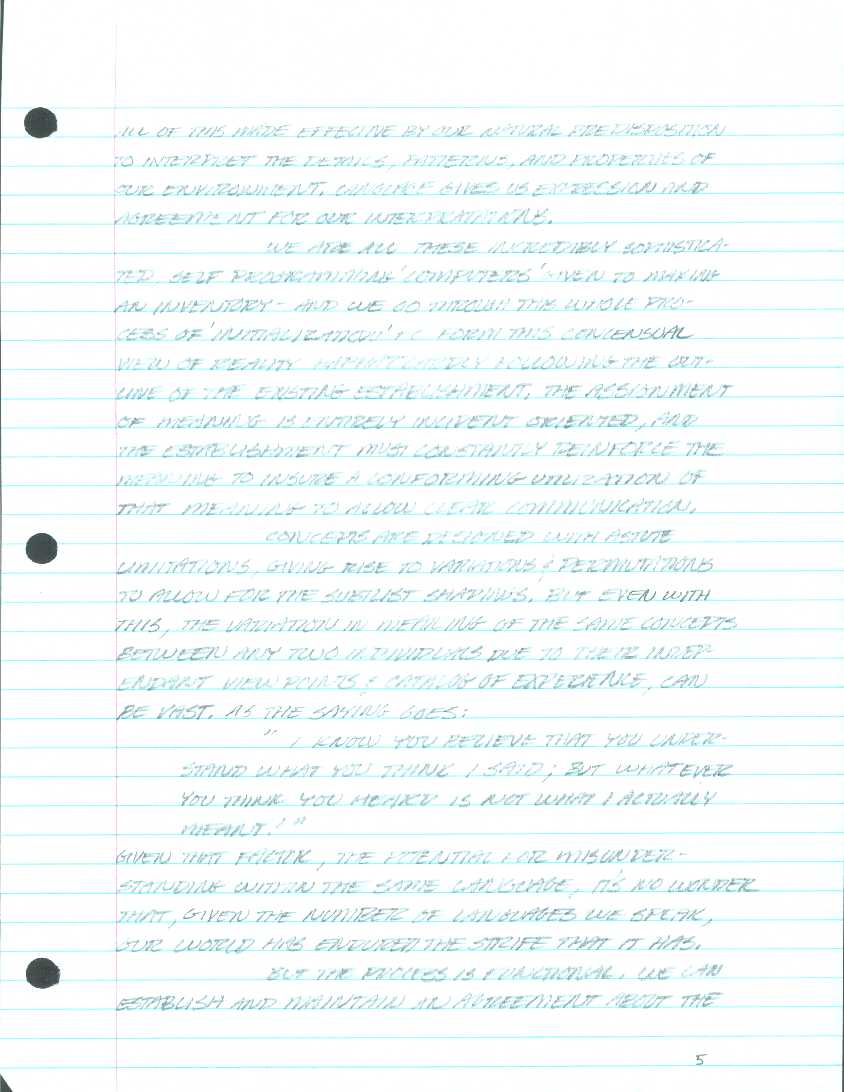 ALL OF THIS MADE EFFECTIVE BY OUR NATURAL PREDISPOSITION
TO INTERPRET THE DETAILS, PATTERNS, AND PROPERTIES OF
OUR ENVIRONMENT. LANGUAGE GIVES US EXPRESSION AND
AGREEMENT FOR OUR INTERPRETATIONS.
WE ARE ALL THESE INCREDIBLY SOPHISTICA-
TED, SELF PROGRAMMING 'COMPUTERS' GIVEN TO MAKING
AN INVENTORY - AND WE GO THROUGH THIS WHOLE PRO-
CESS OF 'INITIALIZATION' TO FORM THIS CONCENSUAL
VIEW OF REALITY FOLLOWING THE OUT-
LINE OF THE EXISTING ESTABLISHMENT. THE ASSIGNMENT
OF MEANING IS ENTIRELY INCIDENT ORIENTED, AND
THE ESTABLISHMENT MUST CONSTANTLY REINFORCE THE
MEANING TO INSURE A CONFORMING UTILIZATION OF
THAT MEANING TO ALLOW CLEAR COMMUNICATION.
CONCEPTS ARE DESIGNED WITH ASTUTE
LIMITATIONS, GIVING RISE TO VARIATIONS & PERMUTATIONS
TO ALLOW FOR THE SUBTLIST SHADINGS. BUT EVEN WITH
THIS, THE VARIATION IN MEANING OF THE SAME CONCEPTS
BETWEEN ANY TWO INDIVIDUALS DUE TO THEIR INDEP-
ENDANT VIEW POINTS & CATALOG OF EXPERIENCE, CAN
BE VAST. AS THE SAYING GOES:
" I KNOW YOU BELIEVE THAT YOU UNDER-
STAND WHAT YOU THINK I SAID; BUT WHATEVER
YOU THINK YOU HEARD IS NOT WHAT I ACTUALLY
MEANT!"
GIVEN THAT FACTOR, THE POTENTIAL FOR MISUNDER-
STANDING WITHIN THE SAME LANGUAGE, IT'S NO WONDER
THAT, GIVEN THE NUMBER OF LANGUAGES WE SPEAK,
OUR WORLD HAS ENDURED THE STRIFE THAT IT HAS.
BUT THE PROCESS IS FUNCTIONAL. WE CAN
ESTABLISH AND MAINTAIN AN AGREEMENT ABOUT THE
5